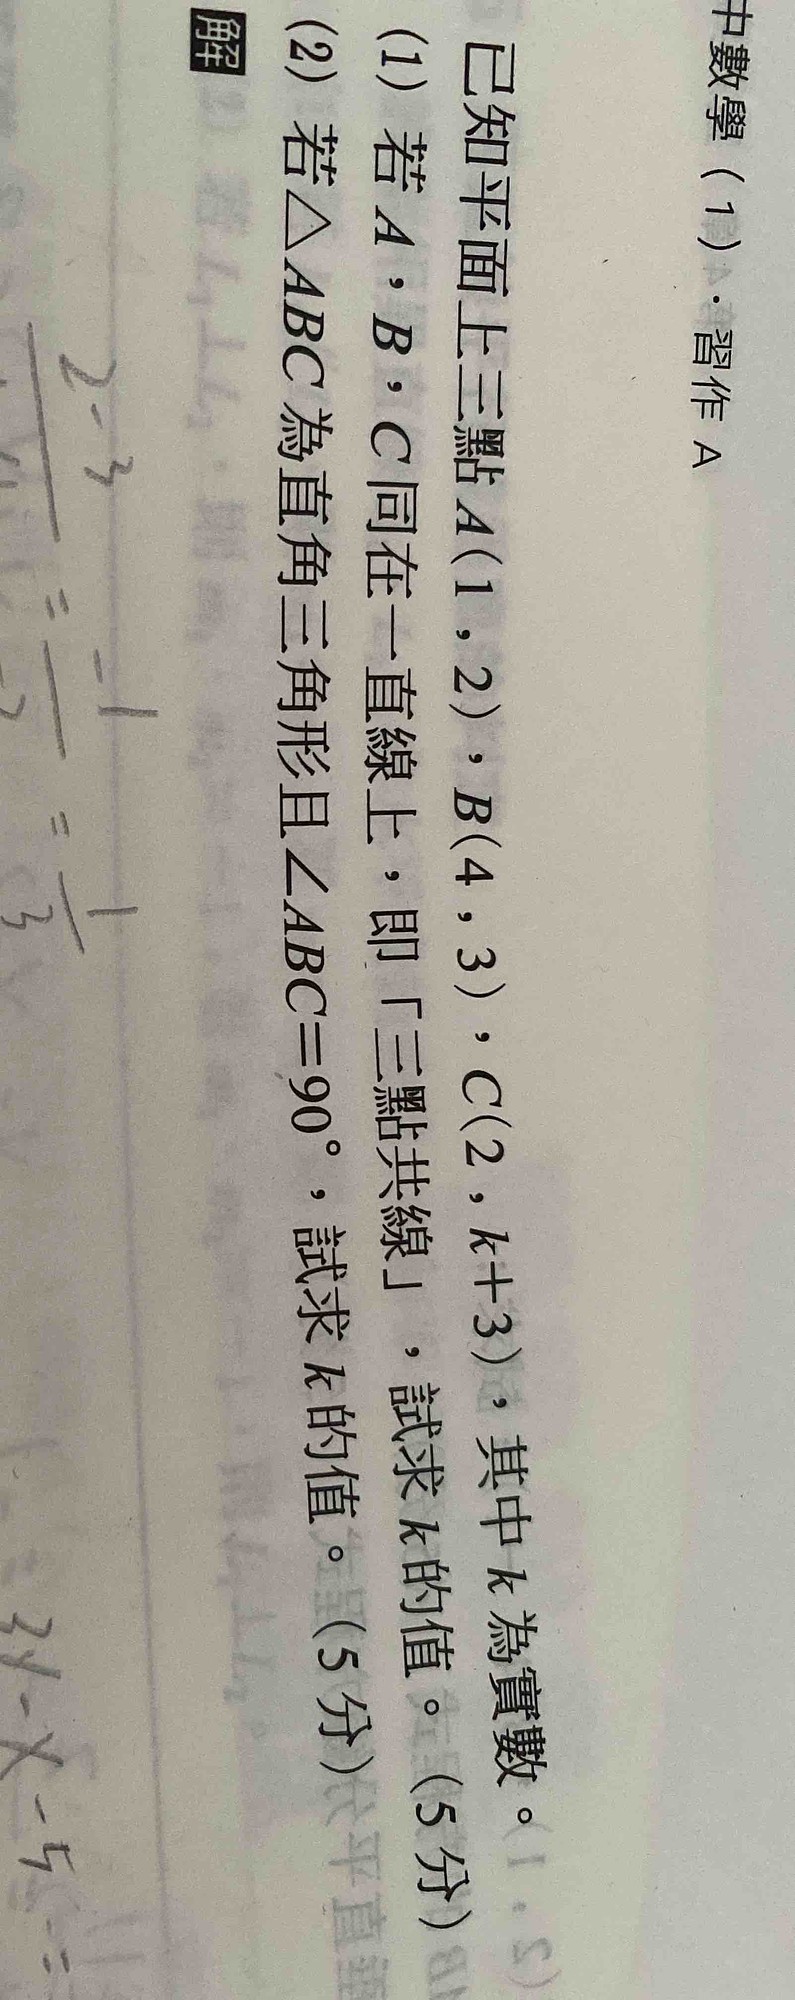 中數學（1）·習作 A
已知平面上三點 A(1，2)，B(4，3)，C(2，k＋3)，其中 k 為實數。
(1) 若 A，B，C 同在一直線上，即「三點共線」，試求 k 的值。（5 分）
(2) 若△ABC 為直角三角形且∠ABC＝90°，試求 k 的值。（5 分）
解
2-3
-1
1
=
=
3
3y-x-5=